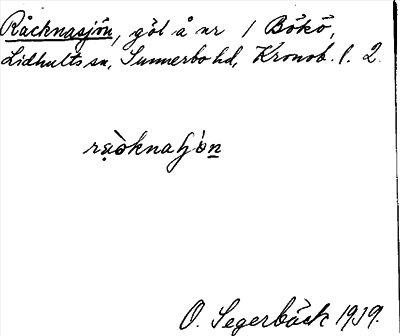 Råcknasjön, göl å nr 1 Bökö,
Lidhults sn, Sunnerbo hd, Kronob. l. 2.
O. Segerbäck 1939.